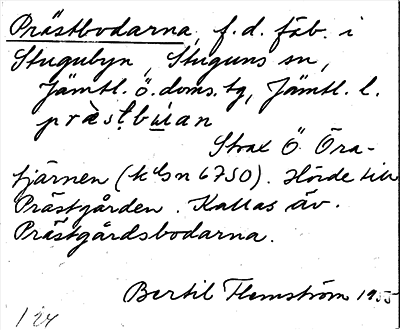 Prästbodarna, f.d. fäb. i
Stugubyn, Stuguns sn,
Jämtl. ö. doms.tg, Jämtl. l.
præ̀stbúan
Strax Ö. Öra-
tjärnen (höjn 6750). Hörde till
Prästgården. Kallas äv.
Prästgårdsbodarna.
Bertil Flemström 1955